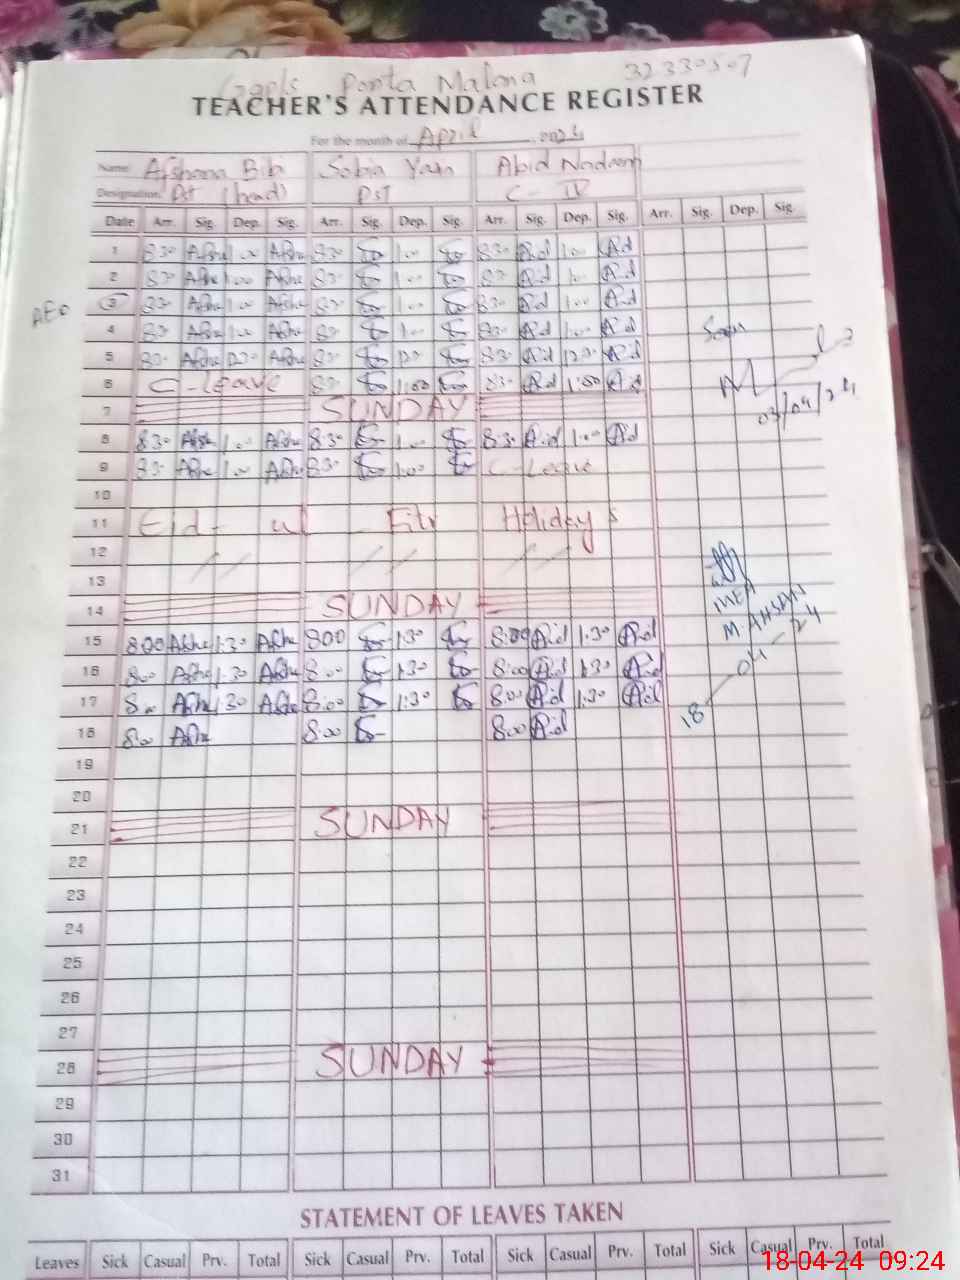 Ggpls Ponta Malana 32330507
TEACHER'S ATTENDANCE REGISTER
For the month of April, 2024
Name: Afshana Bibi Sobia Yasn Abid Nadeem
Designation: PST (head) PST C-IV
Date Arr. Sig. Dep. Sig. Arr. Sig. Dep. Sig. Arr. Sig. Dep. Sig. Arr. Sig. Dep. Sig.
1 8:30 Afsha 1:00 Afsha 8:30 1:00 8:30 Abid 1:00 Abid
2 8:30 Afsha 1:00 Afsha 8:30 1:00 8:30 Abid 1:00 Abid
AEO 3 8:30 Afsha 1:00 Afsha 8:30 1:00 8:30 Abid 1:00 Abid
4 8:30 Afsha 1:00 Afsha 8:30 1:00 8:30 Abid 1:00 Abid Seen
5 8:30 Afsha 12:30 Afsha 8:30 12:30 8:30 Abid 12:30 Abid
6 C-leave 8:30 1:00 8:30 Abid 1:00 Abid
7 SUNDAY 03/04/24
8 8:30 Afsha 1:00 Afsha 8:30 1:00 8:30 Abid 1:00 Abid
9 8:30 Afsha 1:00 Afsha 8:30 1:00 C-Leave
10
11 Eid-ul-Fitr Holidays
12 // // //
13
14 SUNDAY MEA
15 8:00 Afsha 1:30 Afsha 8:00 1:30 8:00 Abid 1:30 Abid M. AHSAN
16 8:00 Afsha 1:30 Afsha 8:00 1:30 8:00 Abid 1:30 Abid
17 8:00 Afsha 1:30 Afsha 8:00 1:30 8:00 Abid 1:30 Abid 18-04-24
18 8:00 Afsha 8:00 8:00 Abid
19
20
21 SUNDAY
22
23
24
25
26
27
28 SUNDAY
29
30
31
STATEMENT OF LEAVES TAKEN
Leaves Sick Casual Prv. Total Sick Casual Prv. Total Sick Casual Prv. Total Sick Casual Prv. Total
18-04-24 09:24